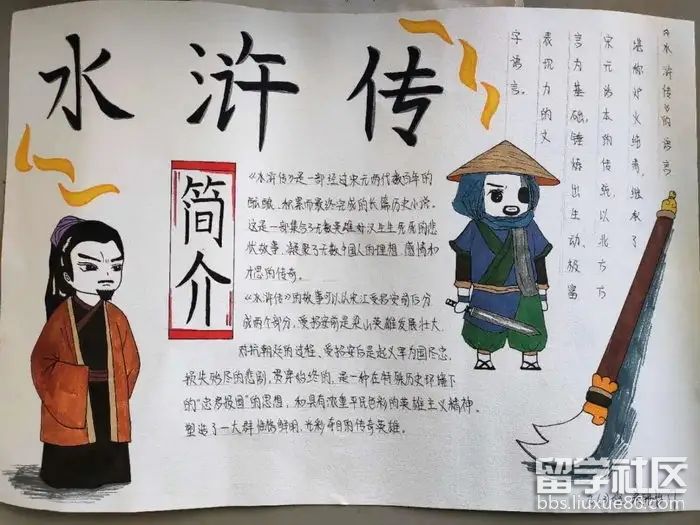 水浒传
简介
《水浒传》是一部经过宋元两代数百年的
酝酿、积累而最终完成的长篇历史小说。
这是一部集与无数英雄好汉与生死庞的悲
伏故事，凝聚了无数中国人的理想、感情和
才思的传奇。
《水浒传》的故事可以从宋江受招安前后分
成两个部分，受招安前是梁山英雄发展壮大、
对抗朝廷的过程、受招安后是起义军为国尽忠，
损失殆尽的悲剧。贯穿始终的，是一种在特殊历史环境下
的“忠孝报国”的思想，和具有浓重平民色彩的英雄主义精神。
塑造了一大群性格鲜明，光彩夺目的传奇英雄。
《水浒传》的语言
堪称炉火纯青，继承了
宋元话本的传统，以北方
言为基础，锤炼出生动、极富
表现力的文
字语言。
留学社区
bbs.liuxue86.com